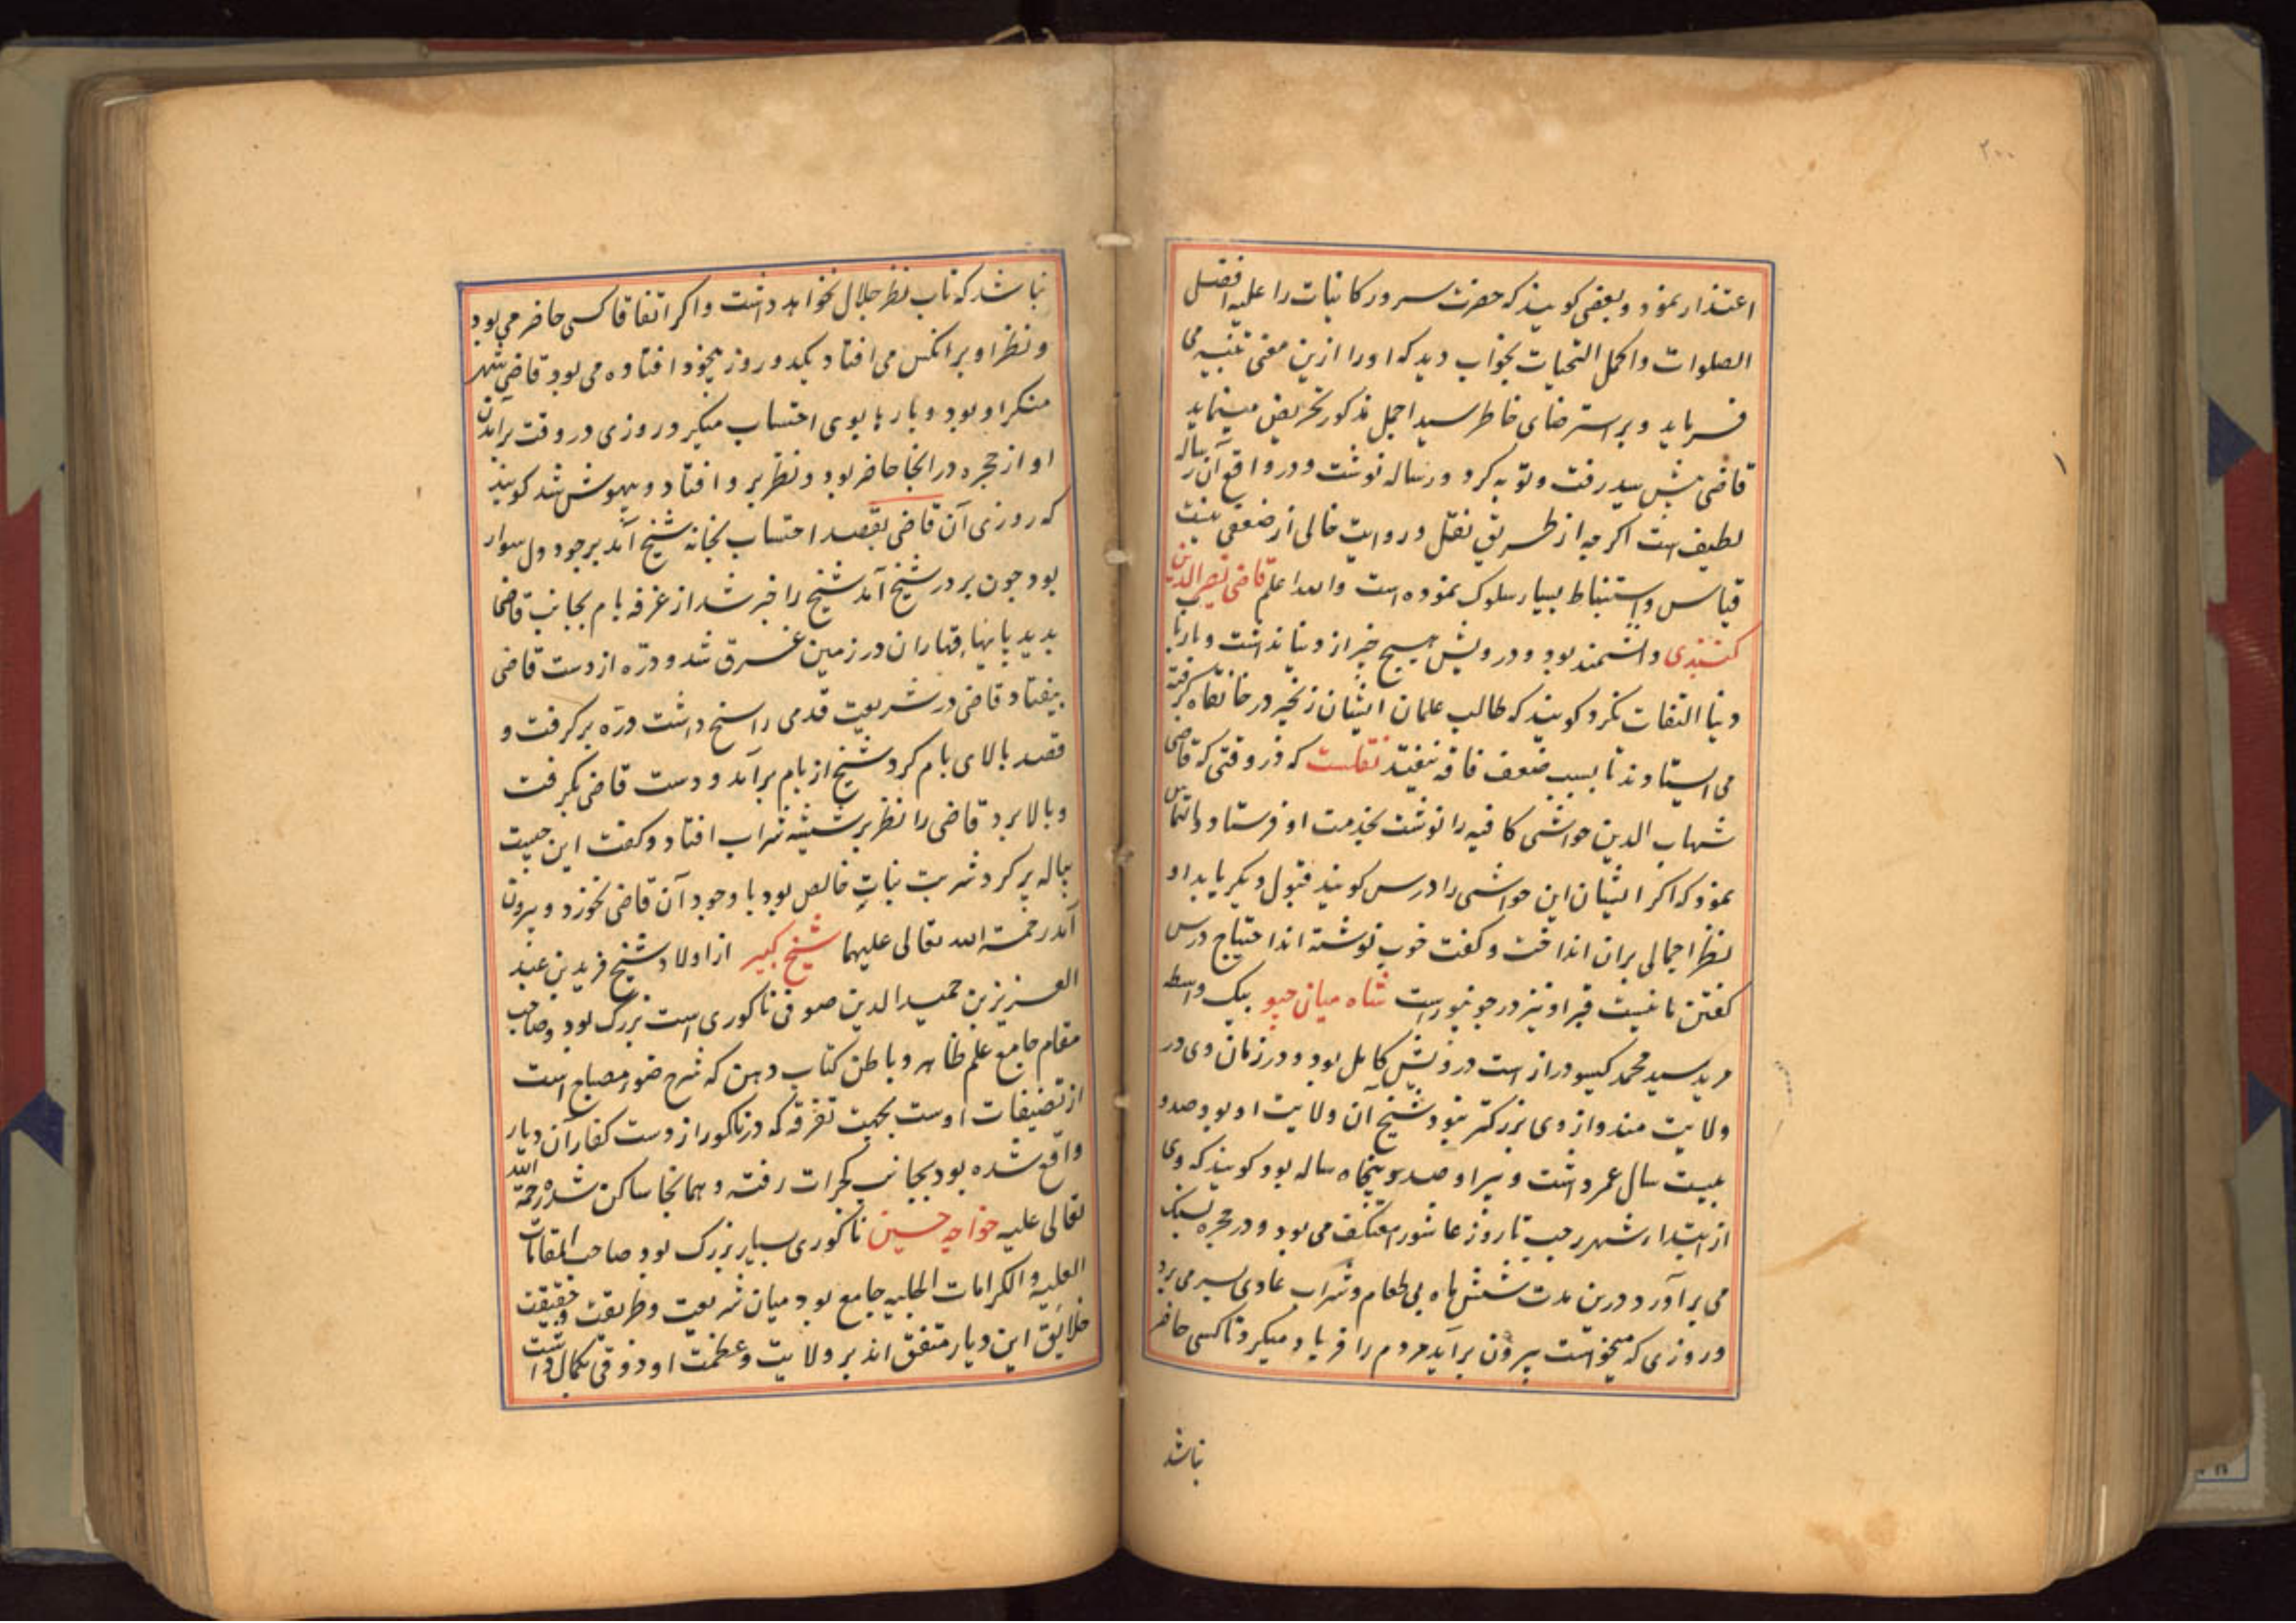 ۲۰۰
اعتذار نمود و بعضی کویند که حضرت سرور کاینات را علیه افضل
الصلوات واکمل التحیات بخواب دید که او را ازین معنی تنبیه می
فرماید و بر استرضای خاطر سید اجمل مذکور تحریض مینماید
قاضی پیش سید رفت و توبه کرد و رساله نوشت ودر واقع آن رساله
لطیف است اکرچه از طریق نقل و روایت خالی از ضعفی نیست
قیاس و استنباط بسیار سلوک نموده است والله اعلم قاضی نصیر الدین
کنبندی دانشمند بود و درویش هیچ خبر از دنیا نداشت و بارباب
دنیا التفات نکرد کویند که طالب علمان ایشان زنجیر در خانقاه کرفته
می ایستادند تا بسبب ضعف فاقه نیفتند نقلست که در وقتی که قاضی
شهاب الدین حواشی کافیه را نوشت بخدمت او فرستاد و التماس
نمود که اکر ایشان این حواشی را درس کویند قبول دیکر یابد او
نظر اجمالی بران انداخت و کفت خوب نوشته اند احتیاج درس
کفتن ما نیست قبر او نیز در جونپور است شاه میان جیو بیک واسطه
مرید سید محمد کیسو دراز است درویش کامل بود و در زمان وی در
ولایت مندو از وی بزرکتر نبود شیخ آن ولایت او بود صد و
بیست سال عمر داشت و پیر او صد و پنجاه ساله بود کویند که وی
از ابتداء شهر رجب تا روز عاشورا معتکف می بود و در حجره بسنک
می برآورد درین مدت شش ماه بی طعام و شراب عادی بسر می برد
و روزی که میخواست بیرون برآید مردم را فریاد میکرد تا کسی حاضر
نباشد
نباشد که تاب نظر جلال نخواهد داشت و اکر اتفاقا کسی حاضر می بود
و نظر او بر انکس می افتاد یکدو روز بیخود افتاده می بود قاضی شهر
منکر او بود و بارها بوی احتساب میکرد روزی در وقت برآمدن
او از حجره در انجا حاضر بود و نظر بر و افتاد و بیهوش شد کویند
که روزی آن قاضی بقصد احتساب بخانه شیخ آمد بر جودول سوار
بود چون بر در شیخ آمد شیخ را خبر شد از غرفه بام بجانب قاضی
بدید پایهاء قهاران در زمین غرق شد و دره از دست قاضی
بیفتاد قاضی در شریعت قدمی راسخ داشت دره برکرفت و
قصد بالای بام کرد شیخ از بام برآمد و دست قاضی بکرفت
و بالا برد قاضی را نظر بر شیشه شراب افتاد و کفت این چیست
پیاله پر کرد شربت نبات خالص بود با وجود آن قاضی نخورد و بیرون
آمد رحمة الله تعالی علیهما شیخ کبیر از اولاد شیخ فرید بن عبد
العزیز بن حمید الدین صوفی ناکوری است بزرک بود و صاحب
مقام جامع علم ظاهر و باطن کتاب دهن که شرح ضوء مصباح است
از تصنیفات اوست بجهت تفرقه که در ناکور از دست کفار آن دیار
واقع شده بود بجانب کجرات رفته و همانجا ساکن شده رحمة الله
تعالی علیه خواجه حسین ناکوری بسیار بزرک بود صاحب المقامات
العلیه و الکرامات الجلیه جامع بود میان شریعت و طریقت و حقیقت
خلایق این دیار متفق اند بر ولایت و عظمت او ذوقی بکمال داشت